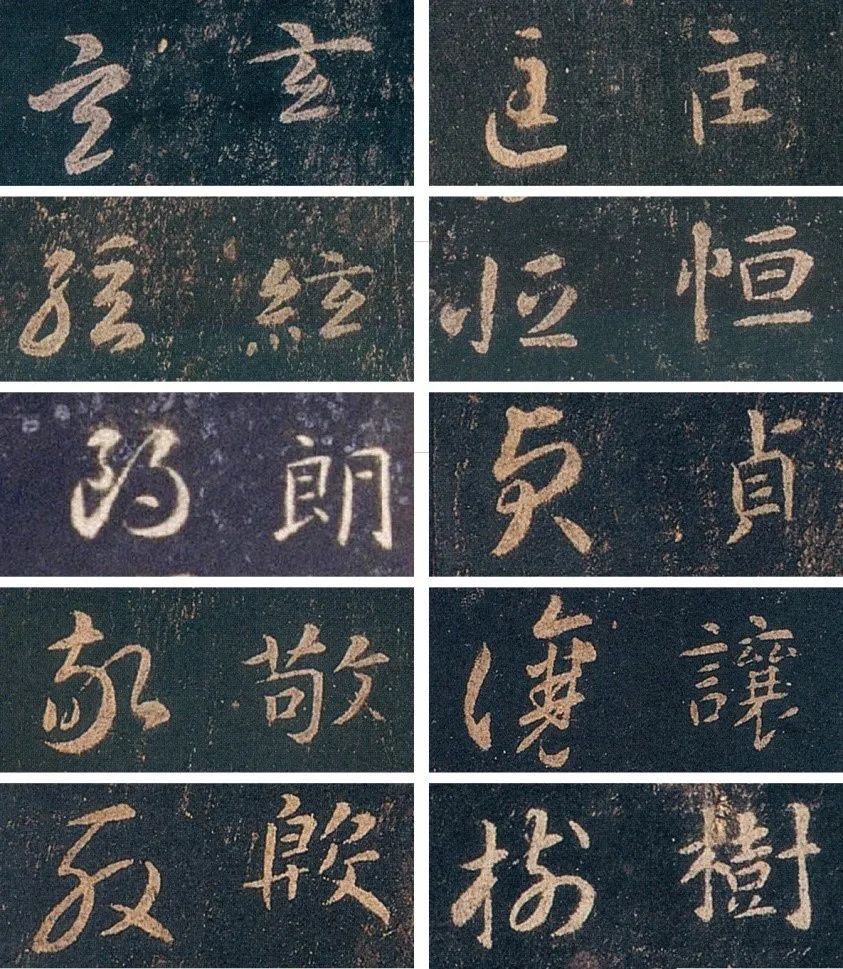 玄 玄
匡 匡
絃 絃
恒 恒
朗 朗
貞 貞
敬 敬
讓 讓
殷 殷
樹 樹